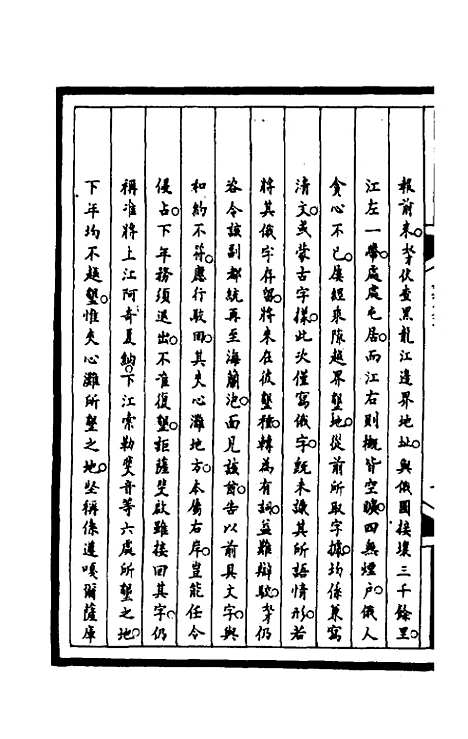 報前來。奴才伏查黑龍江邊界地址。與俄國接壤三千餘里。
江左一帶。處處屯居。而江右則概皆空曠。四無煙户。俄人
貪心不已。屢經乘隙越界墾地。從前所取字據。均係兼寫
清文或蒙古字樣。此次僅寫俄字。既未識其所語情形。若
將其俄字存留。將來在彼墾種。轉為有詞。益難辯駁。奴才仍
咨令該副都統再至海蘭泡。面見該酋。告以前具文字。與
和約不符。應行駁回。其夾心灘地方。本屬右岸。豈能任令
侵占。下年務須退出。不准復墾。詎薩斐啟雖接回其字。仍
稱准將上江阿奇夏納。下江索勒斐音等六處所墾之地。
下年均不越墾。惟夾心灘所墾之地。堅稱係遵嘎爾薩庫